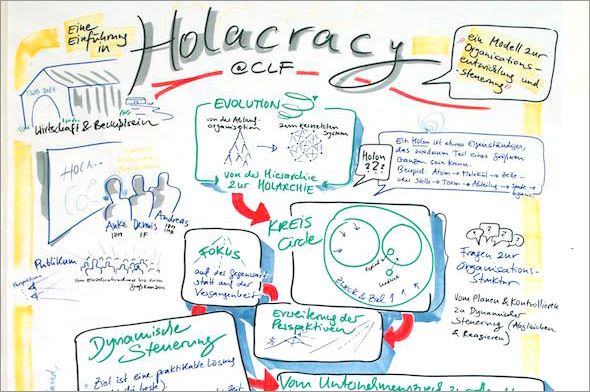 Eine
Einführung
in
Holacracy
@CLF
"ein Modell zur
Organisations-
entwicklung und
steuerung"
Wirtschaft &
EVOLUTION
von der Ablauf-
organisation
zum vernetzten
System
von der Hierarchie
zur HOLARCHIE
Holon
???
Ein Holon ist etwas Eigenständiges,
das wiederum Teil eines größeren
Ganzen sein kann.
Beispiel: Atom → Molekül → Zelle →
oder Stelle → Team → Abteilung →
Hol...
Anke
Dennis
IF
Andreas
Publikum
Perspektiven
KREIS
Circle
Zweck & Ziel
Fragen zur
Organisations-
Struktur
Vom Planen & Kontrollieren
zu Dynamischer
Steuerung (Abgleichen
& Reagieren)
FOKUS
auf die Gegenwart
statt auf der
Vergangenheit
Erweiterung der
Perspektiven
Dynamische
Steuerung
Ziel ist eine praktikable Lösung
Vom Unternehmenszweck